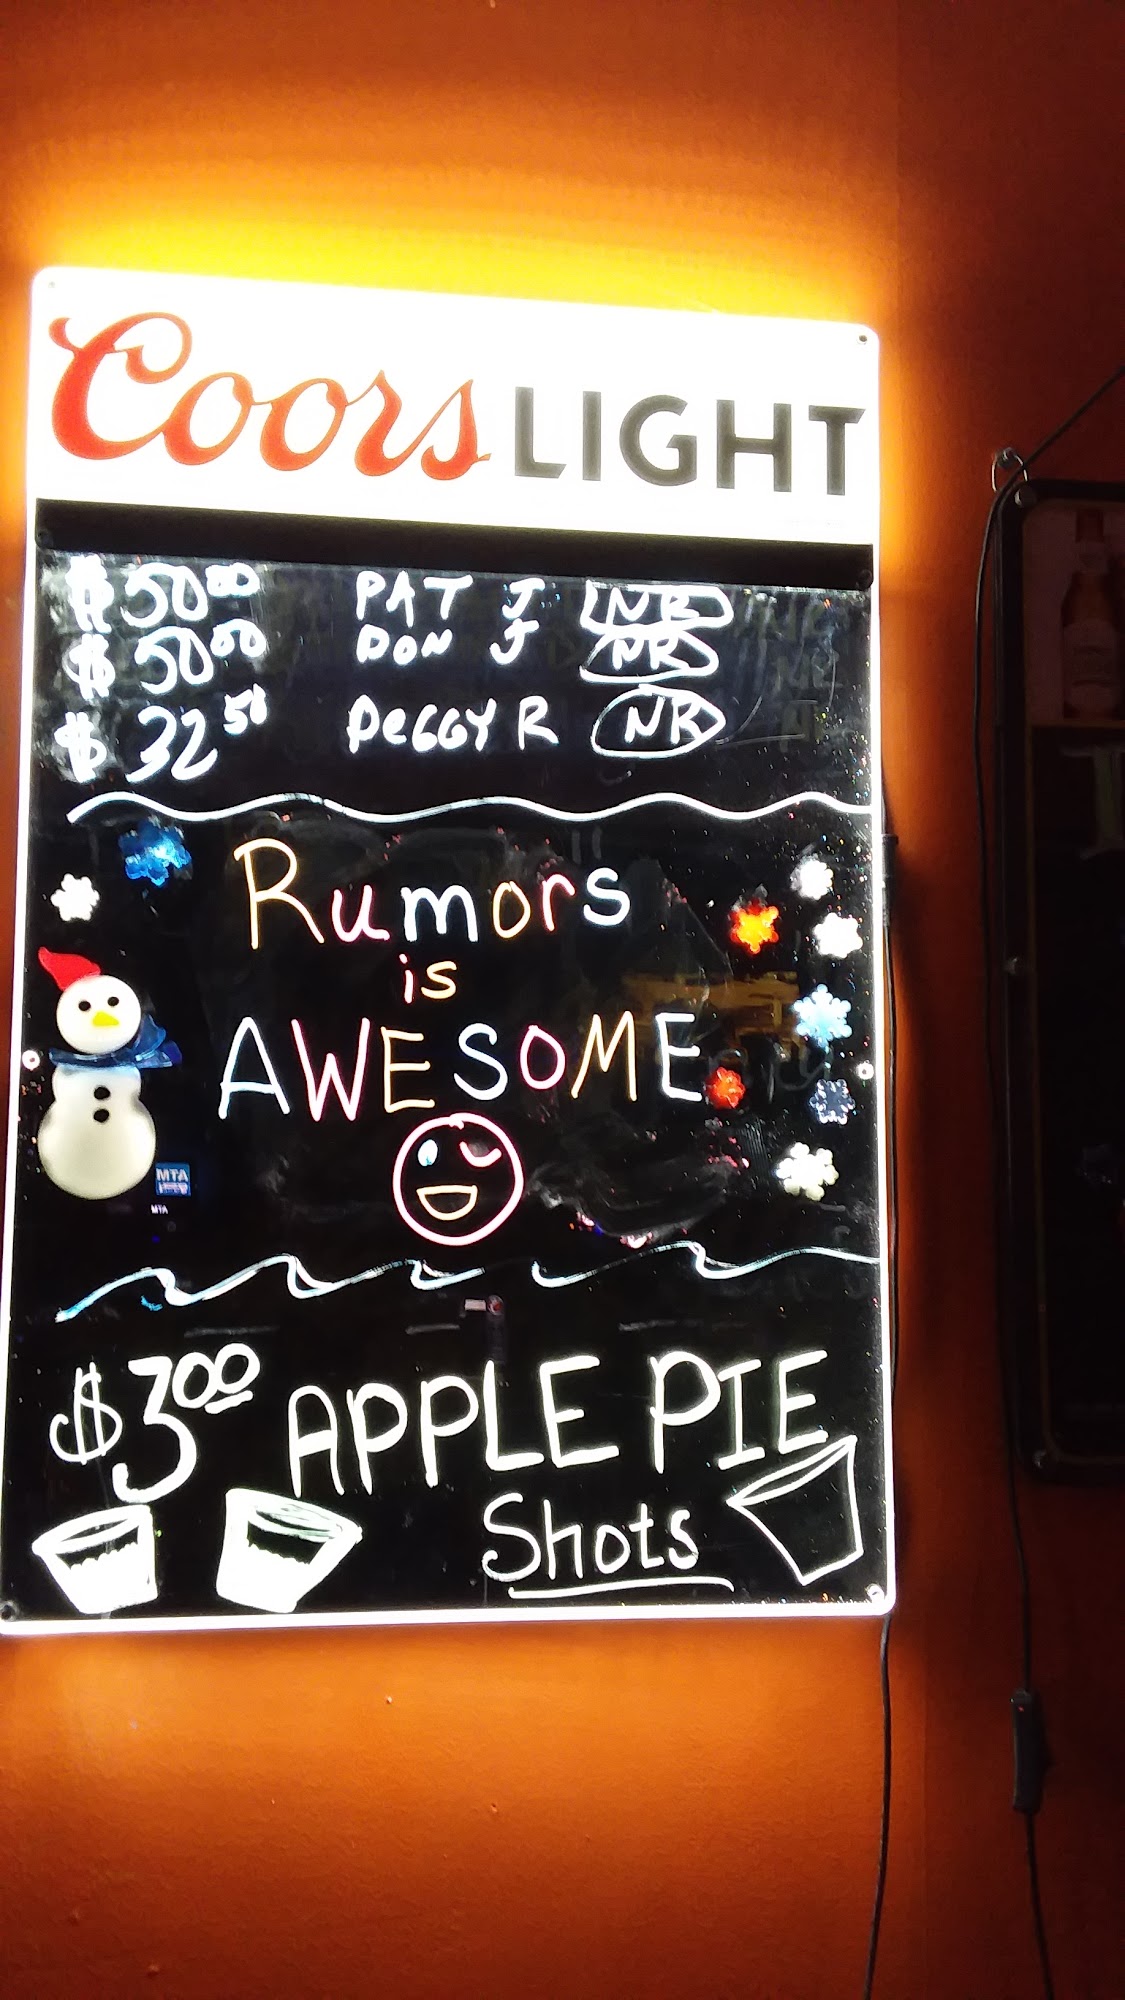 Coors LIGHT
$ 50.00 PAT J NR
$ 50.00 DON J NR
$ 32.50 PeGGY R NR
Rumors
is
AWESOME
MTA
MTA
$3.00 APPLE PIE
Shots